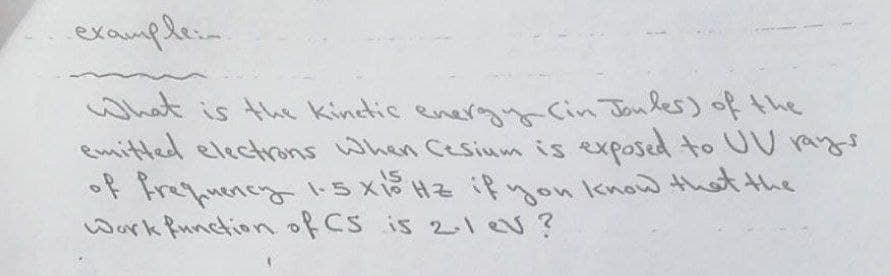 example:-
What is the kinetic energy (in Joules) of the
emitted electrons when Cesium is exposed to UV rays
of frequency 1.5 x10¹⁵ HZ if you know that the
work function of CS is 2.1 eV ?